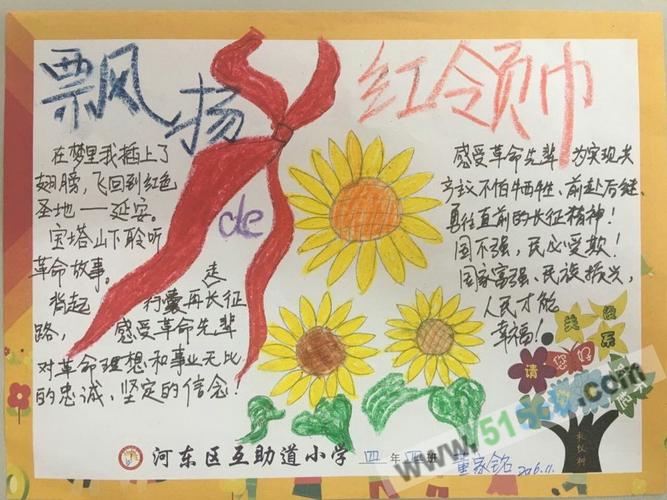 飘扬 de 红领巾
在梦里我插上了
翅膀，飞回到红色
圣地——延安。
宝塔山下聆听
革命故事。
背起行囊再走长征
路，感受革命先辈
对革命理想和事业无比
的忠诚、坚定的信念！
感受革命先辈为实现共
产主义不怕牺牲、前赴后继、
勇往直前的长征精神！
国不强，民必受欺！
国家富强、民族振兴，
人民才能
幸福！
请
礼仪树
河东区互助道小学 四年四班 董家铭 2016.11.
www.51
.com